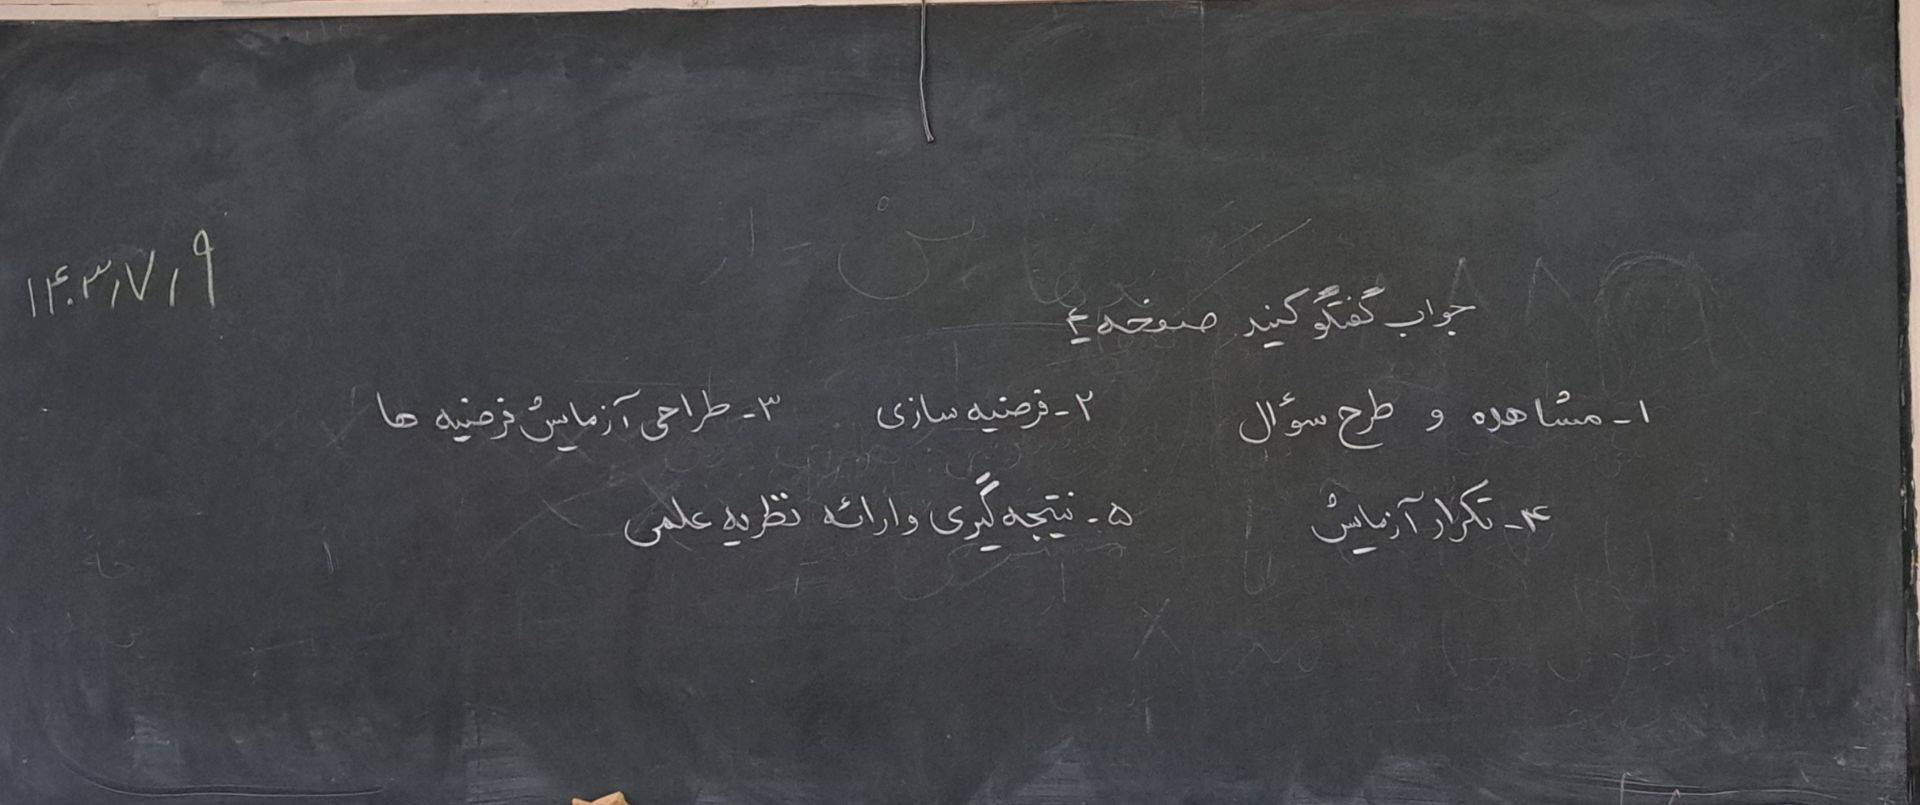 ۱۴۰۳٫۷٫۹
جواب گفتگو کنید صفحه ٤
۱- مشاهده و طرح سؤال ۲- فرضیه سازی ۳- طراحی آزمایش فرضیه ها
۴- تکرار آزمایش ۵- نتیجه گیری و ارائه نظریه علمی